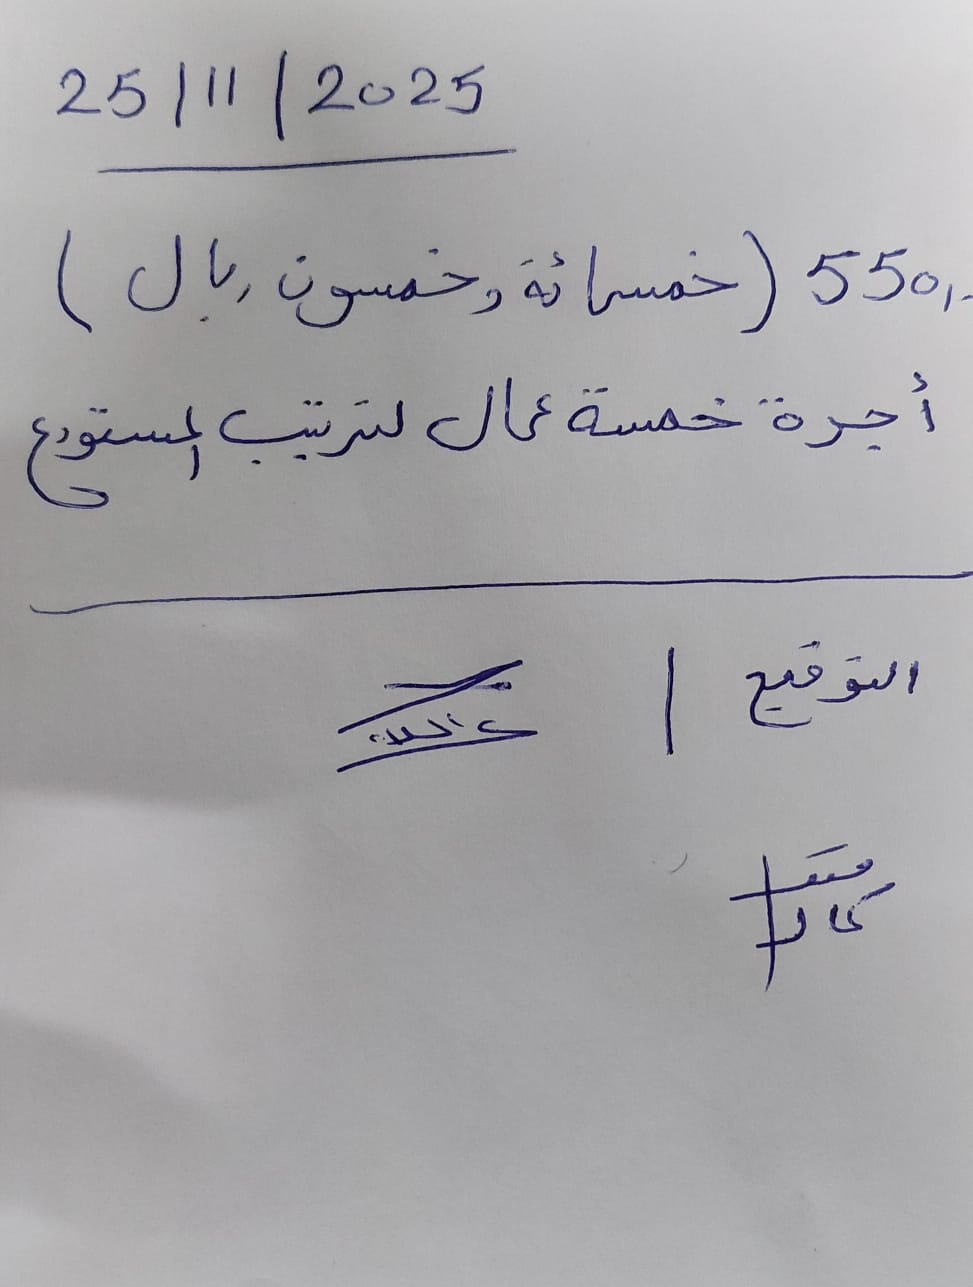 25/11/2025
550,- (خمسمائة وخمسون ريال)
أجرة خمسة عمال لترتيب المستودع
التوقيع /